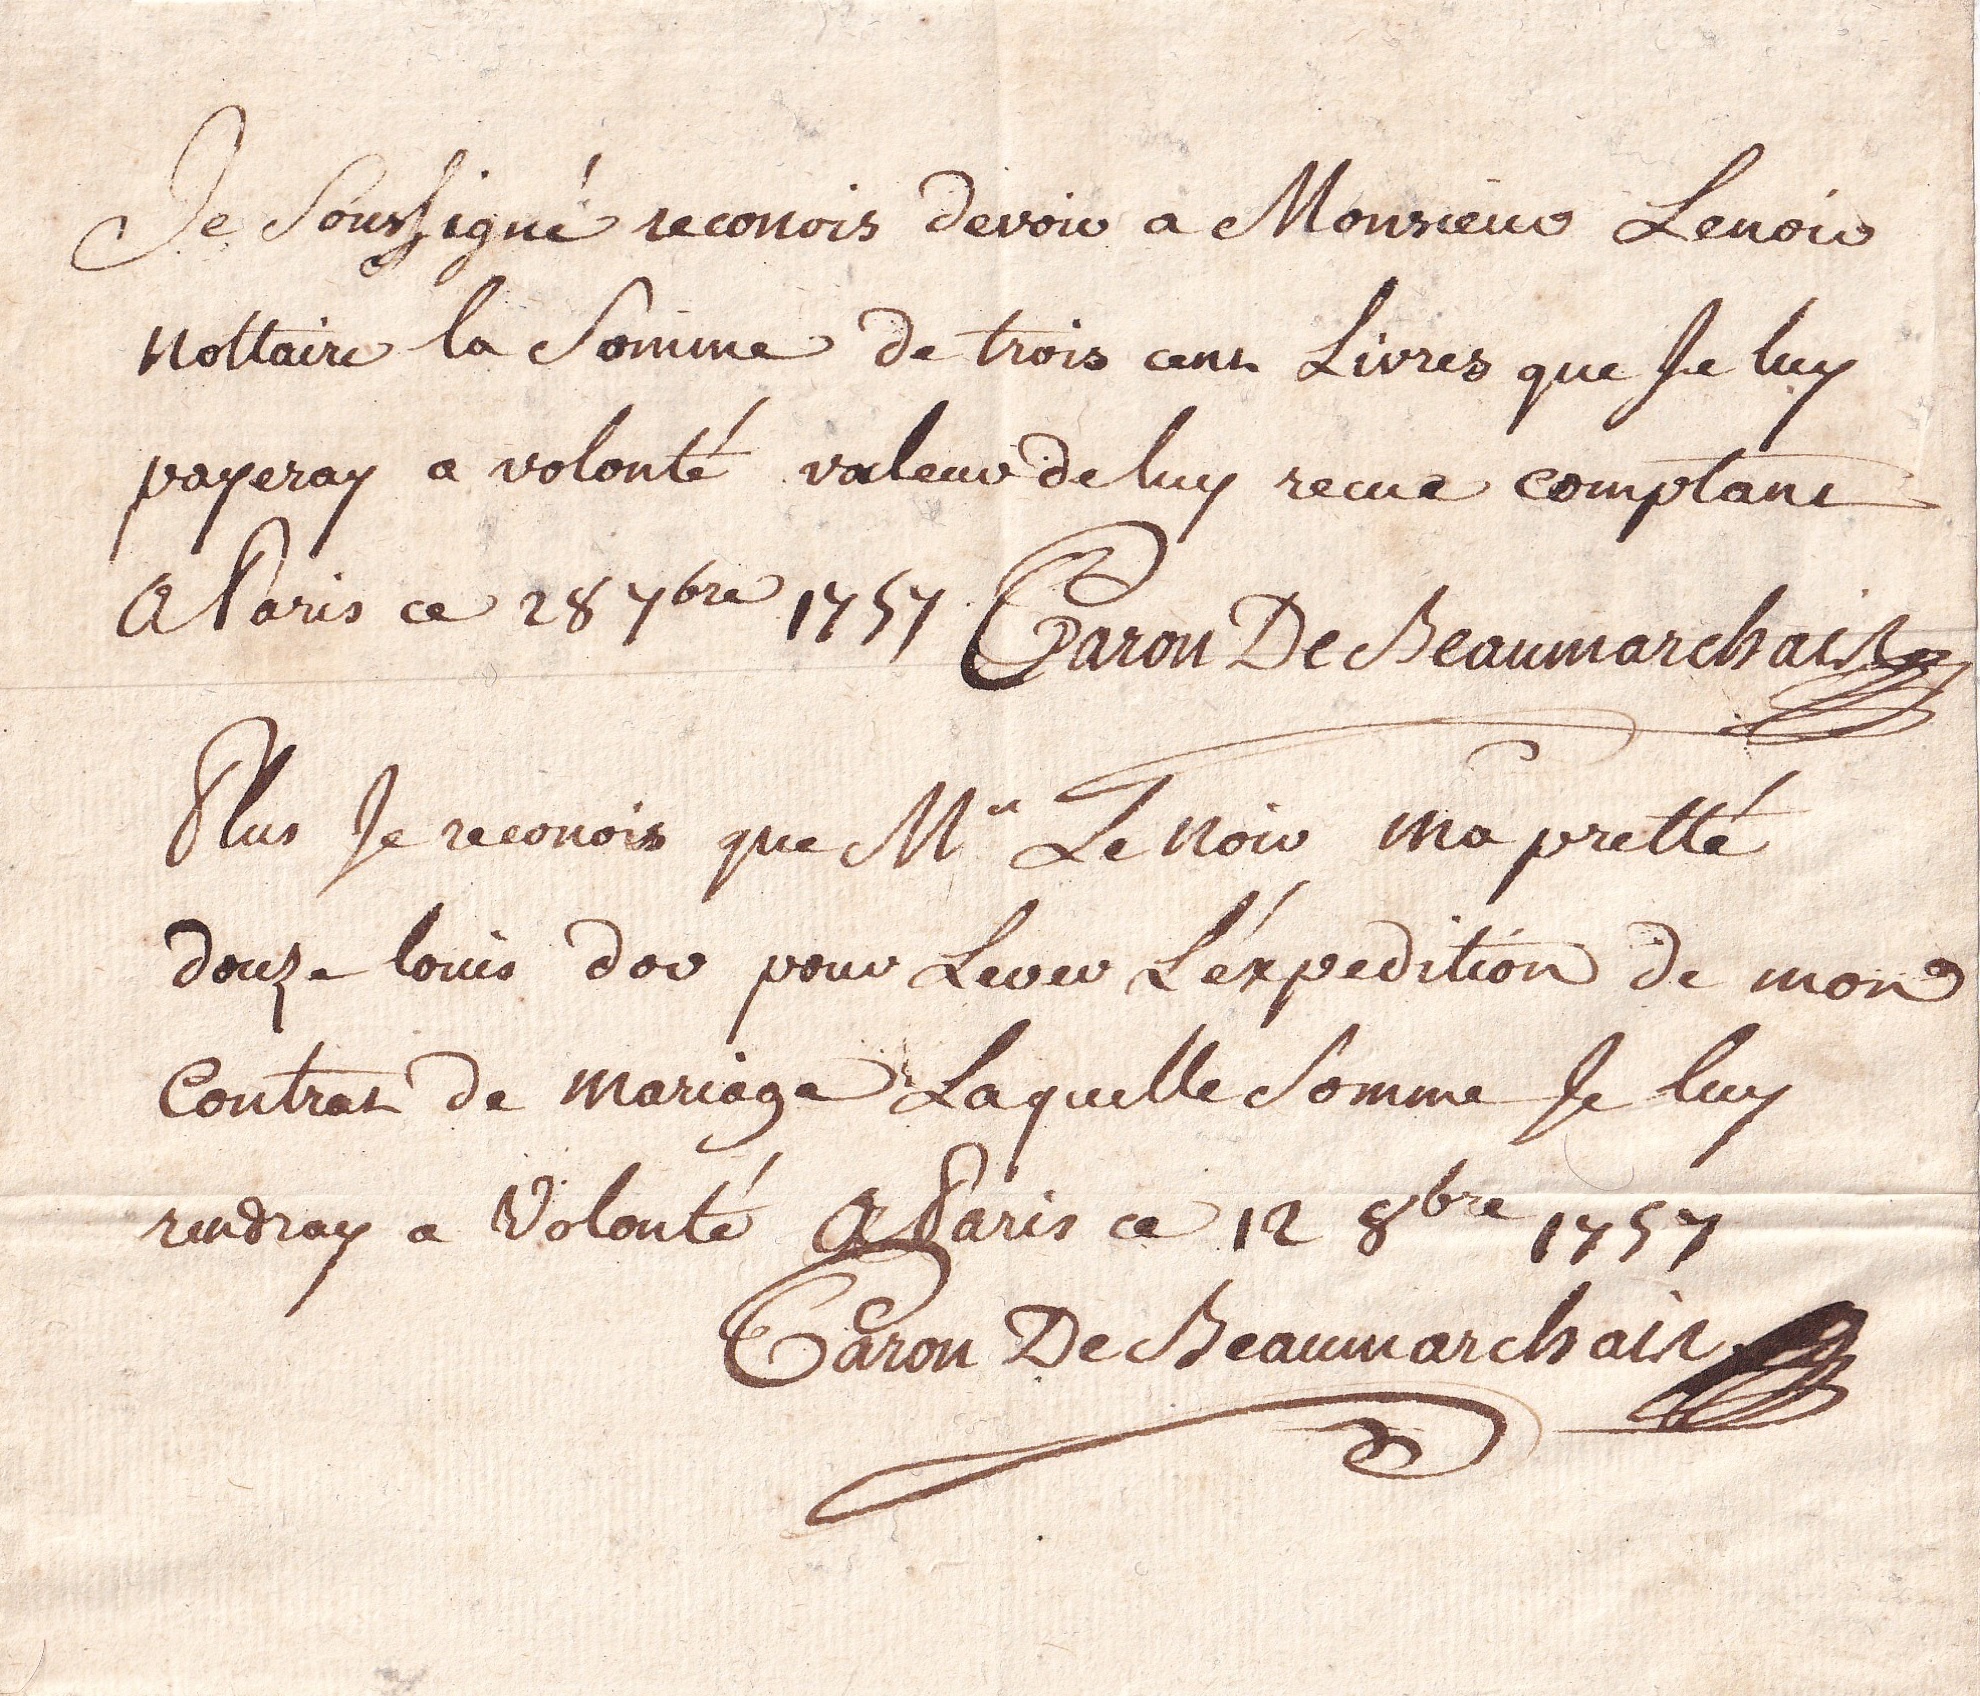 Je soussigné reconois devoir a Monsieur Lenoir
nottaire la somme de trois cent Livres que Je luy
payeray a volonté valeur de luy recue comptant
A Paris ce 28 7bre 1757 Caron De Beaumarchais
Plus Je reconois que Mr Le noir ma pretté
douze louis dor pour Lever L'éxpedition de mon
Contrat de mariage Laquelle somme Je luy
rendray a Volonté A Paris ce 12 8bre 1757
Caron De Beaumarchais